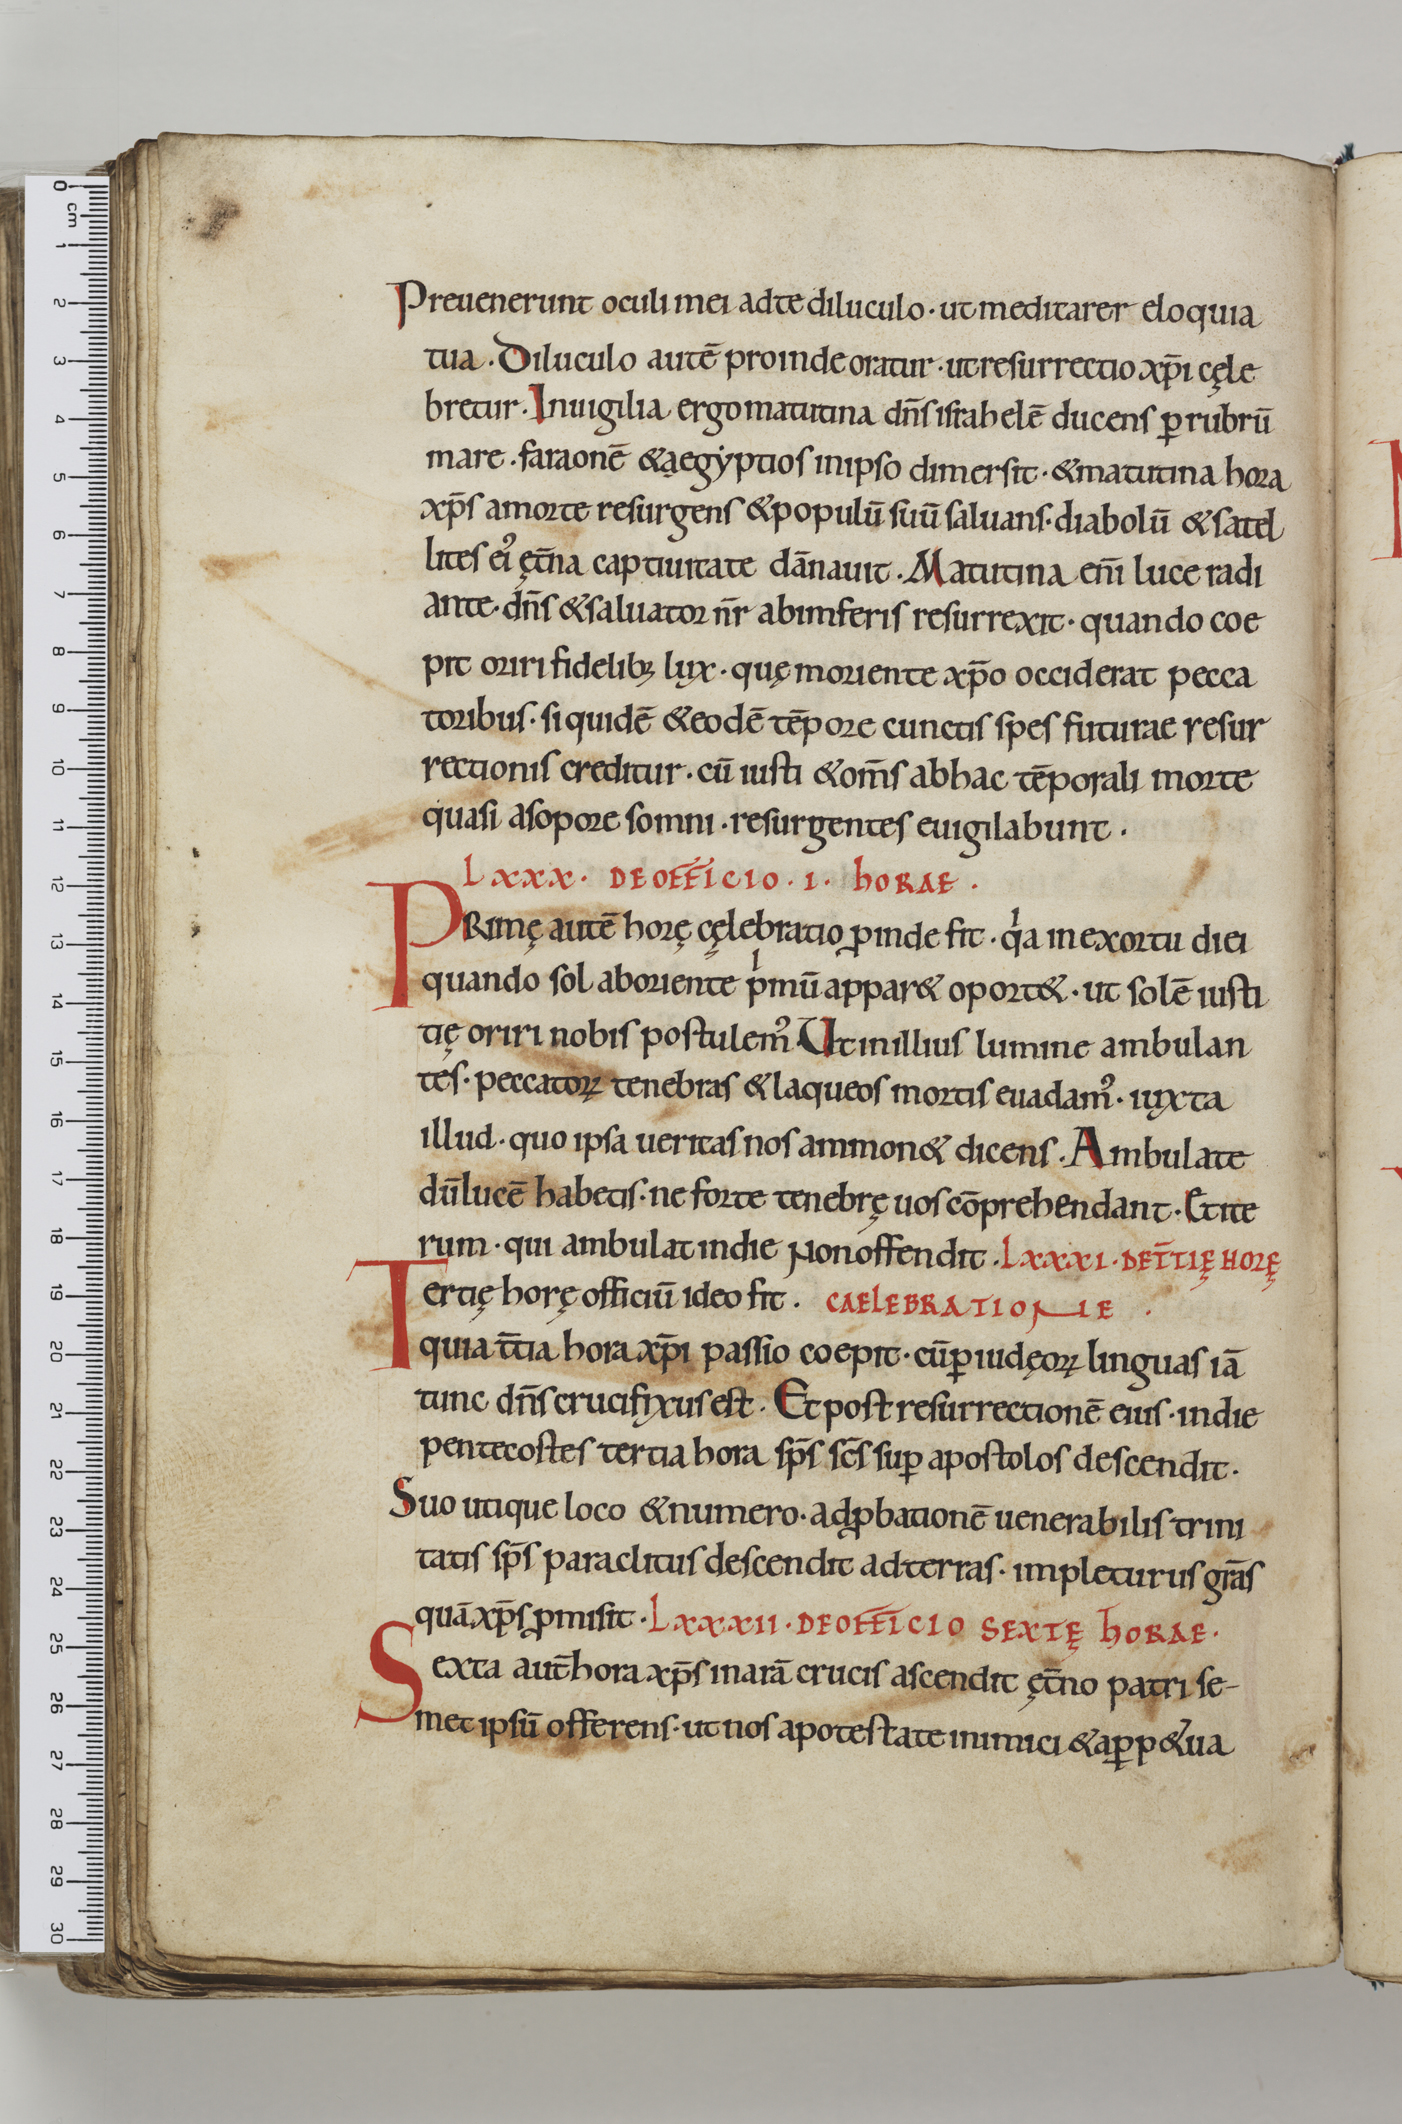 Preuenerunt oculi mei ad te diluculo · ut meditarer eloquia
tua · Diluculo autē proinde oratur · ut resurrectio xp̄i cęle
bretur · In uigilia ergo matutina dn̄s israhelē ducens ꝑ rubrū
mare · faraonē & aegẏptios in ipso dimersit · & matutina hora
xp̄s a morte resurgens & populū suū saluans · diabolū & satel
lites ei᾿ ęt̄na captiuitate dānauit · Matutina en̄i luce radi
ante · dn̄s & saluator n̄r ab imferis resurrexit · quando coe
pit oriri fidelibꝫ lux · quę moriente xp̄o occiderat pecca
toribus · siquidē & eodē tēpore cunctis spes futurae resur
rectionis creditur · cū iusti & om̄s ab hac tēporali morte
quasi a sopore somni · resurgentes euigilabunt ·
Lxxx · DE OFFICIO · I · hORAE ·
PRimę autē horę cęlebratio ꝓinde fit · qͥa in exortu diei
quando sol ab oriente pͥmū appar& oport& · ut solē iusti
tię oriri nobis postulem᾿ · Ut in illius lumine ambulan
tes · peccatoꝝ tenebras & laqueos mortis euadam᾿ · iuxta
illud · quo ipsa ueritas nos ammon& dicens · Ambulate
dū lucē habetis · ne forte tenebrę uos cōprehendant · Et ite
rum · qui ambulat in die Non offendit · Lxxxi · DE T̄TIĘ HORĘ
Tertię horę officiū ideo fit · CAELEBRATIONE ·
quia t̄tia hora xp̄i passio coepit · cū ꝑ iudęoꝝ linguas iā
tunc dn̄s crucifixus est · Et post resurrectionē eius · in die
pentecostes tertia hora sp̄s sc̄s suꝑ apostolos descendit ·
Suo utique loco & numero · ad ꝓbationē uenerabilis trini
tatis sp̄s paraclitus descendit ad terras · impleturus gr̄as
quā xp̄s ꝓmisit · Lxxxii · DE OFFICIO SEXTĘ hORAE ·
Sexta aut̄ hora xp̄s in arā crucis ascendit ęt̄no patri se-
met ipsū offerens · ut nos a potestate inimici & a ꝑp&ua
0
cm
1
2
3
4
5
6
7
8
9
10
11
12
13
14
15
16
17
18
19
20
21
22
23
24
25
26
27
28
29
30